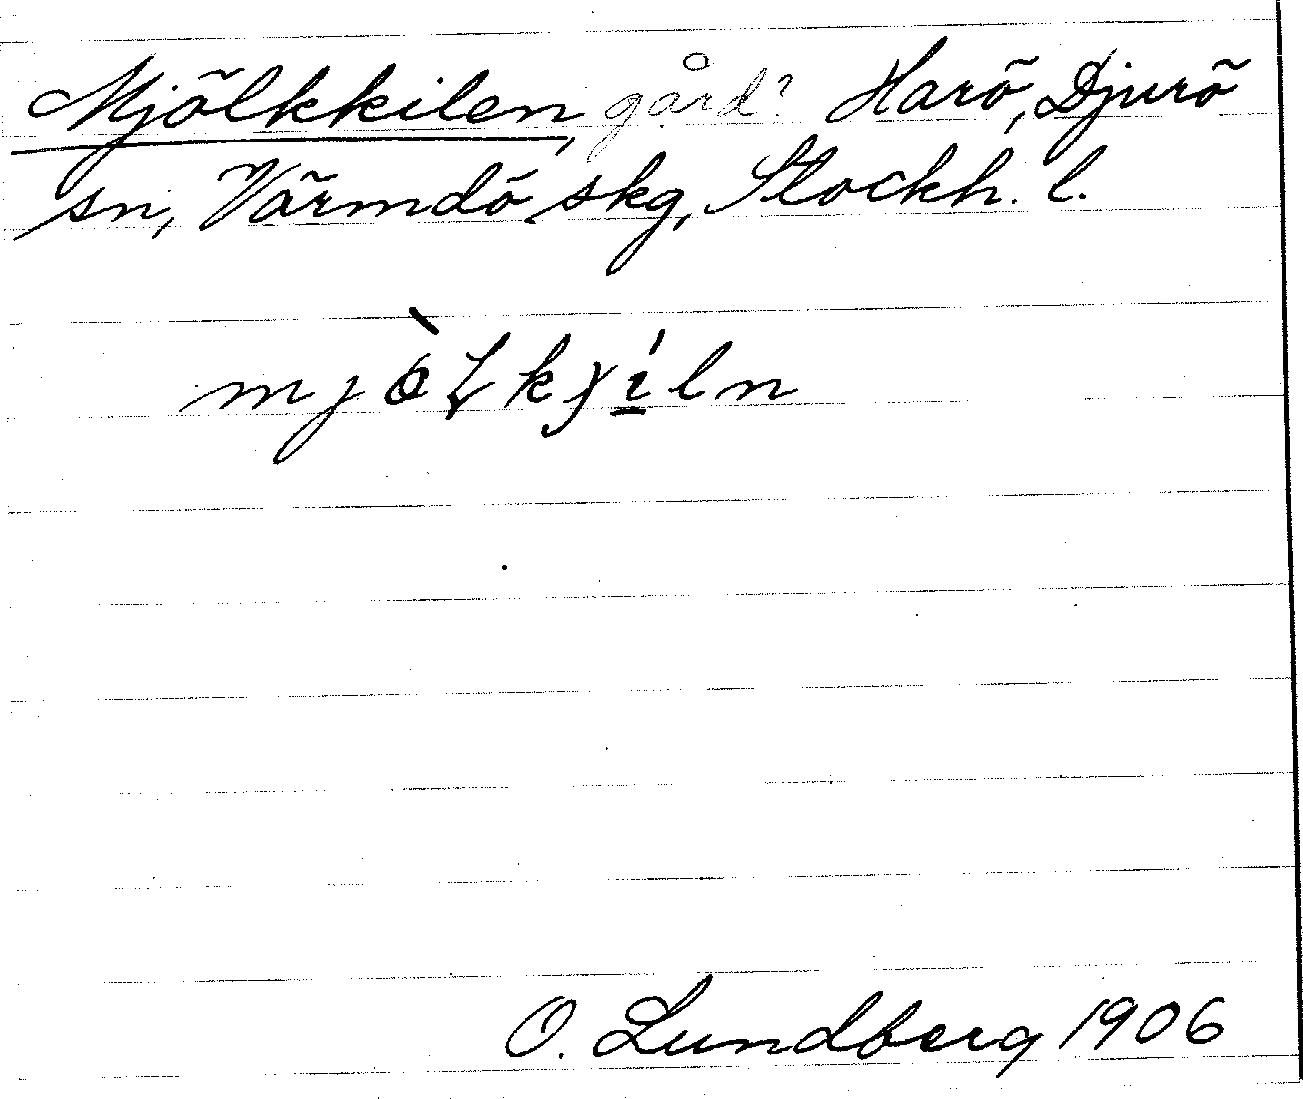 Mjölkkilen, gård? Harö, Djurö
sn, Värmdö skg, Stockh. l.
O. Lundberg 1906